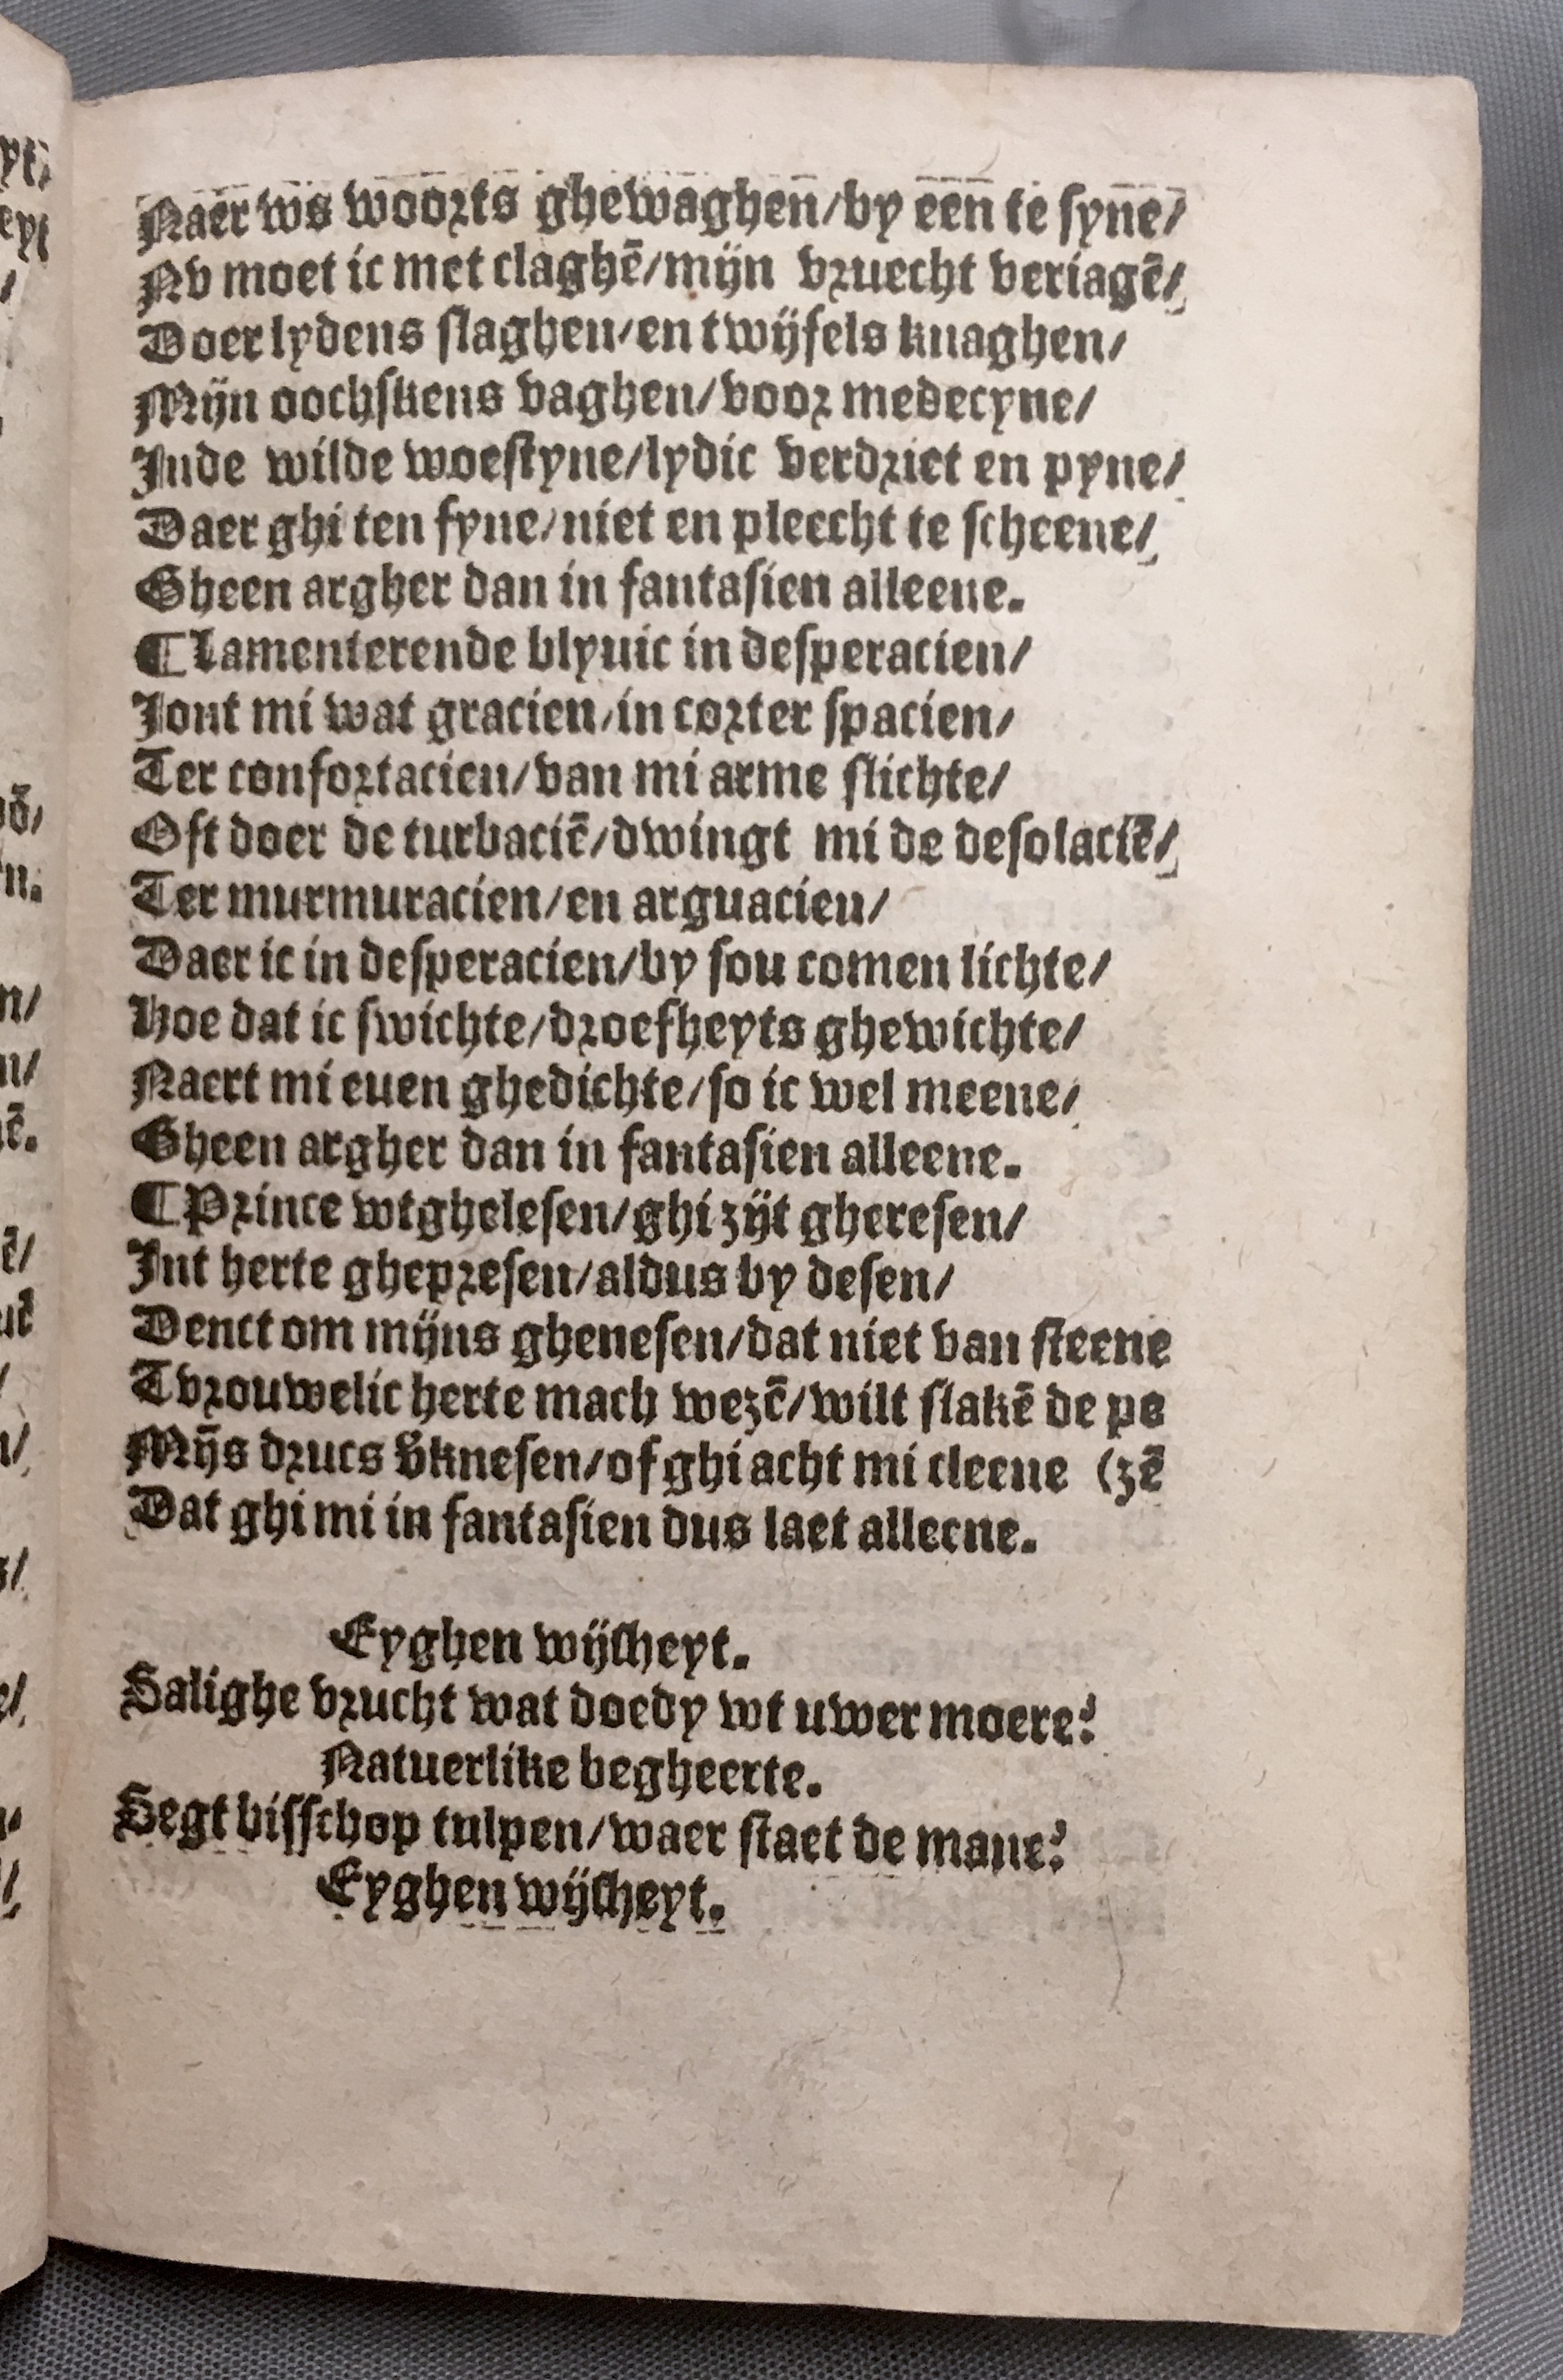 Naer ws woorts ghewaghen/by een te syne/
Nv moet ic met claghē/mijn vruecht veriagē/
Doer lydens slaghen/en twijfels knaghen/
Mijn oochskens vaghen/voor medecyne/
Inde wilde woestyne/lydic verdriet en pyne/
Daer ghi ten fyne/niet en pleecht te scheene/
Gheen argher dan in fantasien alleene.
¶Lamenterende blyuic in desperacien/
Jont mi wat gracien/in corter spacien/
Ter confortacien/van mi arme slichte/
Oft doer de turbaciē/dwingt mi de desolaciē/
Ter murmuracien/en arguacien/
Daer ic in desperacien/by sou comen lichte/
Hoe dat ic swichte/droefheyts ghewichte/
Naert mi euen ghedichte/so ic wel meene/
Gheen argher dan in fantasien alleene.
¶Prince wtghelesen/ghi zijt gheresen/
Int herte ghepresen/aldus by desen/
Denct om mijns ghenesen/dat niet van steene
Tvrouwelic herte mach wezē/wilt slakē de pe
Mijs drucs v̄knesen/of ghi acht mi cleene (zē
Dat ghi mi in fantasien dus laet alleene.
Eyghen wijsheyt.
Salighe vrucht wat doedy wt uwer moere?
Natuerlike begheerte.
Segt bisschop tulpen/waer staet de mane?
Eyghen wijsheyt.